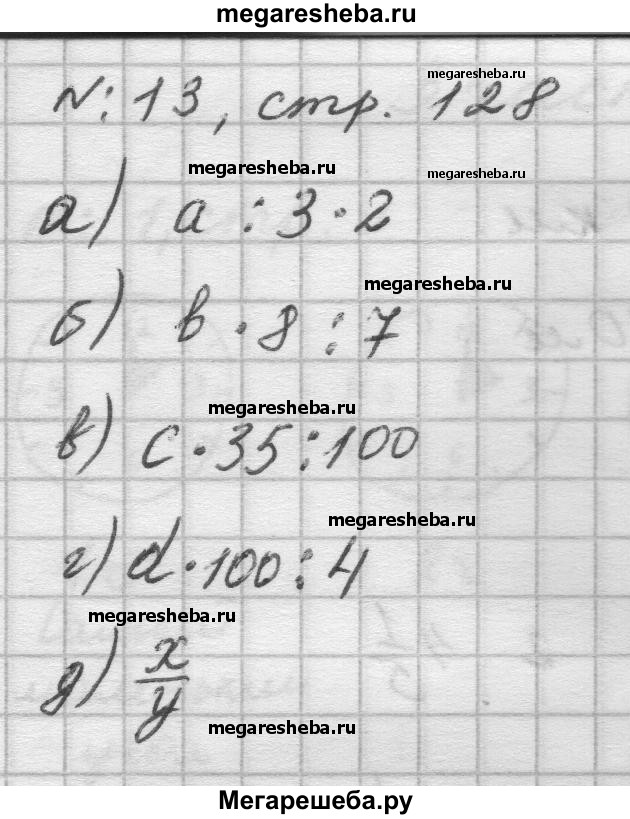 megaresheba.ru
№: 13, стр. 128
megaresheba.ru
megaresheba.ru
megaresheba.ru
а) a : 3 · 2
megaresheba.ru
б) b · 8 : 7
megaresheba.ru
в) c · 35 : 100
megaresheba.ru
г) d · 100 : 4
megaresheba.ru
д) x/y
megaresheba.ru
Мегарешеба.ру